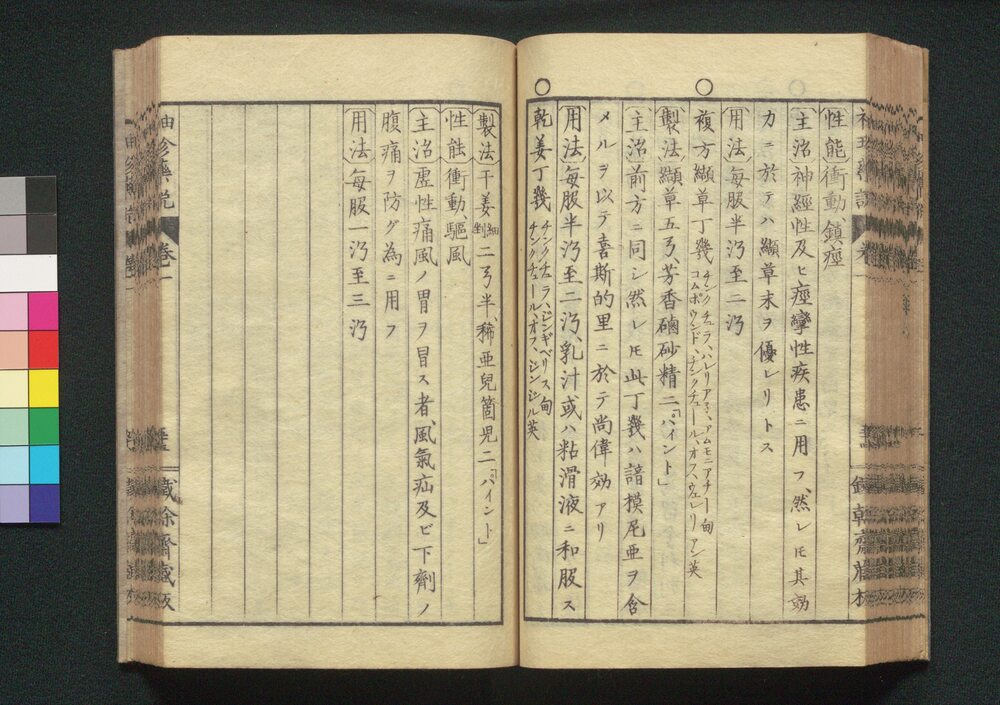 〔性能〕衝動、鎮痙
〔主治〕神經性及ヒ痙攣性疾患ニ用フ、然レㇳモ其効
カニ於テハ纈草末ヲ優レリトス
〔用法〕毎服半沔至二沔
○複方纈草丁幾 チンクチュラ、ハレリアネ、アムモニアチー 甸
コムポウンド、チンクチュール、オフ、ウェレリアン 英
〔製法〕纈草五弓、芳香磠砂精二「パイント」
〔主治〕前方ニ同シ然レㇳモ此丁幾ハ諳摸尼亜ヲ含
メルヲ以テ喜斯的里ニ於テ尚偉効アリ
〔用法〕毎服半沔至二沔、乳汁或ハ粘滑液ニ和服ス
○乾姜丁幾 チンクチュラ、ジンギベリス 甸
チンクチュール、オフ、ジンジル 英
〔製法〕干姜 細剉 二弓半、稀亜兒箇児二「パイント」
〔性能〕衝動、驅風
〔主治〕虚性痛風ノ胃ヲ冒ス者、風氣疝及ビ下劑ノ
腹痛ヲ防グ為ニ用フ
〔用法〕毎服一沔至三沔
袖珍藥説 卷一
蔵余齋蔵板